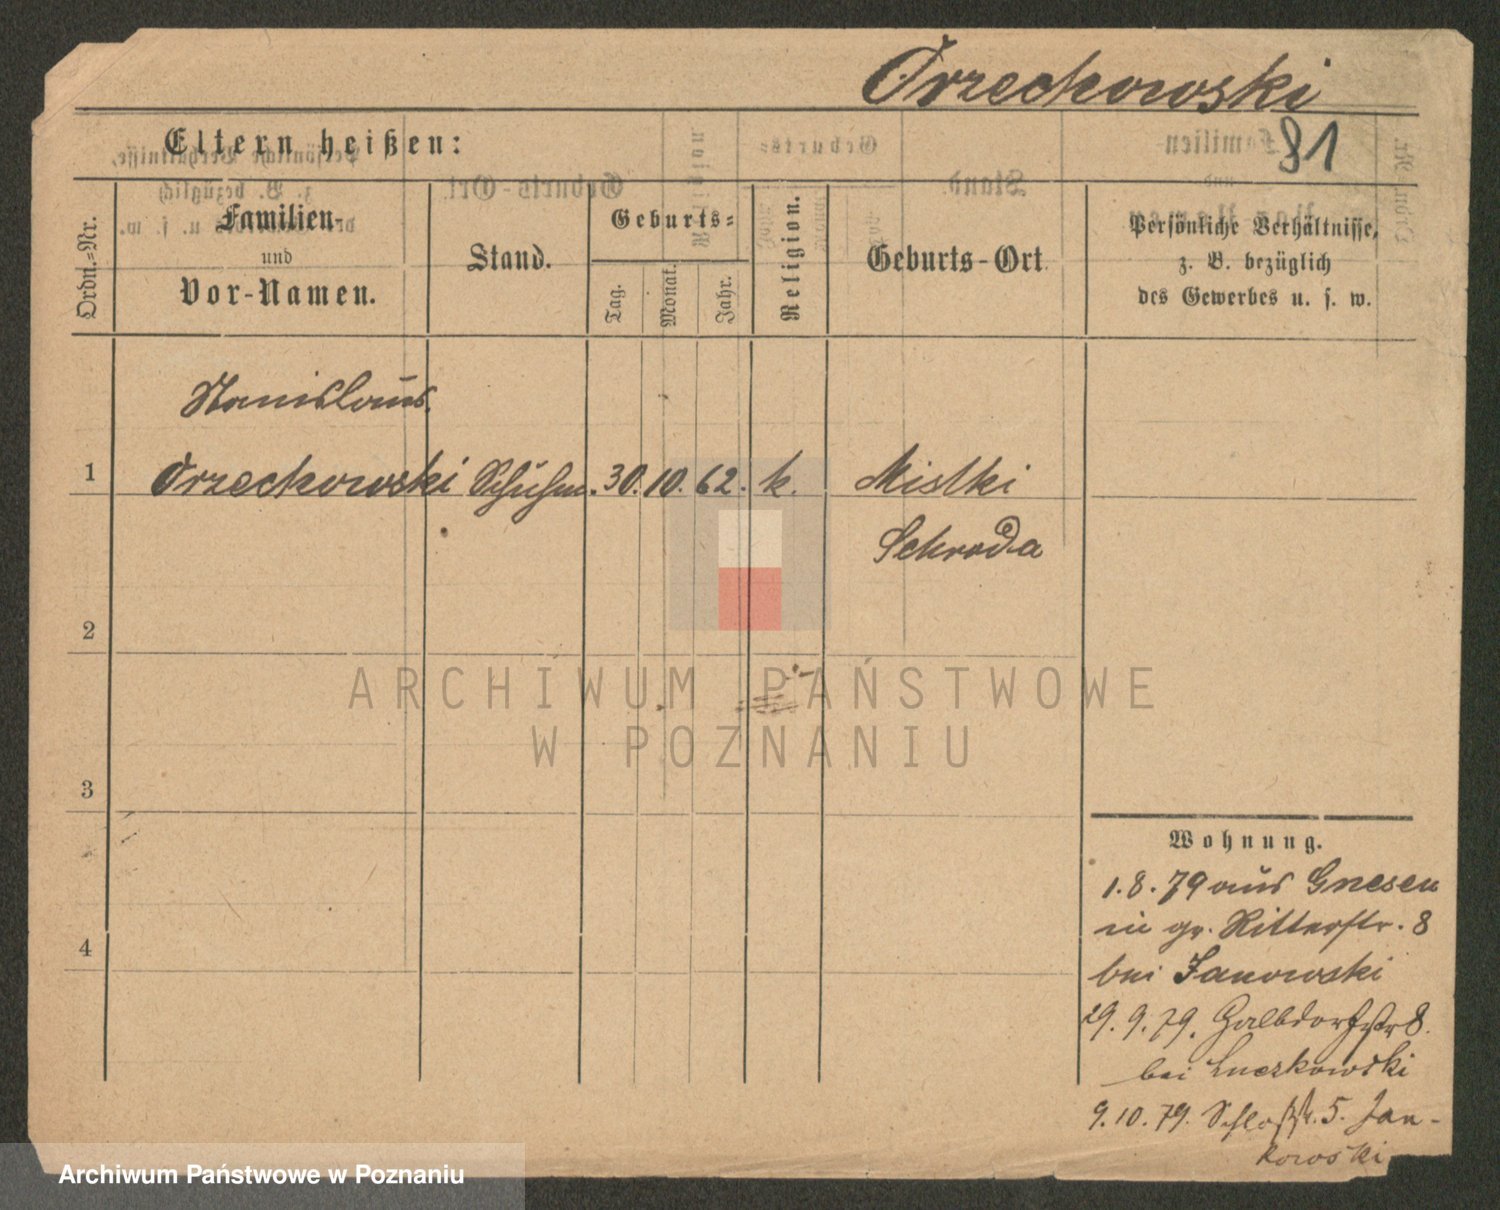 Orzechowski
81
Eltern heißen:
Ordn.-Nr.
Familien-
und
Vor-Namen.
Stand.
Geburts-
Tag.
Monat.
Jahr.
Religion.
Geburts-Ort
Persönliche Verhältnisse,
z. B. bezüglich
des Gewerbes u. s. w.
Stanislaus
1 Orzechowski Schuhm. 30. 10. 62. k. Mistki
Schroda
2
3
4
Wohnung.
1. 8. 79 aus Gnesen
in gr. Ritterstr. 8
bei Janowski
29. 9. 79. Halbdorfstr 8.
bei Luczkowski
9. 10. 79. Schloßstr. 5. Jan-
kowski
ARCHIWUM PAŃSTWOWE
W POZNANIU
Archiwum Państwowe w Poznaniu